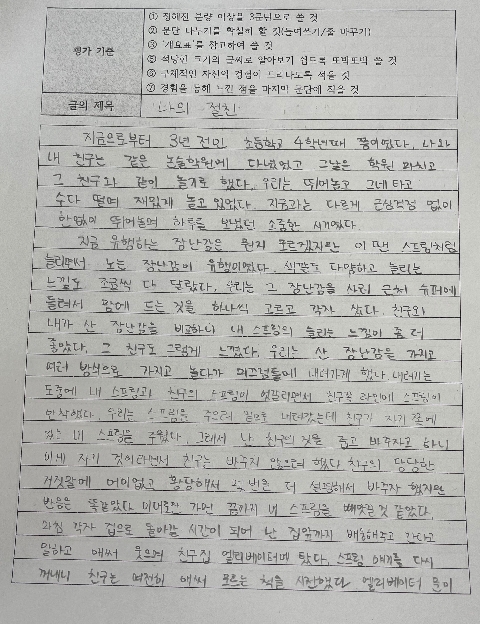 평가 기준
① 정해진 분량 이상을 3문단으로 쓸 것
② 문단 나누기를 확실히 할 것(들여쓰기/줄 바꾸기)
③ '개요표'를 참고하여 쓸 것
④ 적당한 크기의 글씨로 알아보기 쉽도록 또박또박 쓸 것
⑤ 구체적인 자신의 경험이 드러나도록 적을 것
⑦ 경험을 통해 느낀 점을 마지막 문단에 적을 것
글의 제목
나의 절친
지금으로부터 3년 전인 초등학교 4학년때 쯤이었다. 나와
내 친구는 같은 논술학원에 다녔었고 그날은 학원 마치고
그 친구와 같이 놀기로 했다. 우리는 뛰어놀고 그네 타고
수다 떨며 재밌게 놀고 있었다. 지금과는 다르게 근심걱정 없이
한없이 뛰어놀며 하루를 보냈던 소중한 시기였다.
지금 유행하는 장난감은 뭔지 모르겠지만 이 땐 스프링처럼
늘리면서 노는 장난감이 유행이었다. 색깔도 다양하고 늘리는
느낌도 조금씩 다 달랐다. 우리는 그 장난감을 사러 근처 슈퍼에
들려서 맘에 드는 것을 하나씩 고르고 각자 샀다. 친구와
내가 산 장난감을 비교하니 내 스프링의 늘리는 느낌이 좀 더
좋았다. 그 친구도 그렇게 느꼈다. 우리는 산 장난감을 가지고
여러 방식으로 가지고 놀다가 미끄럼틀에 내려가게 했다. 내려가는
도중에 내 스프링과 친구의 스프링이 엇갈리면서 친구쪽 라인에 스프링이
안착했다. 우리는 스프링을 주으러 밑으로 내려갔는데 친구가 자기 쪽에
있는 내 스프링을 주웠다. 그래서 난 친구의 것을 줍고 바꾸자고 하니
이게 자기 것이라면서 친구는 바꾸지 않으려 했다. 친구의 당당한
거짓말에 어이없고 황당해서 두번은 더 설득해서 바꾸자 했지만
반응은 똑같았다. 이대로라면 가만 끝까지 내 스프링을 빼앗길 것 같았다.
각자 집으로 돌아갈 시간이 되어 난 집앞까지 배웅해주고 간다고
말하고 애써 웃으며 친구집 엘리베이터에 탔다. 스프링 얘기를 다시
꺼내니 친구는 여전히 애써 모르는 척을 시전했다. 엘리베이터 문이